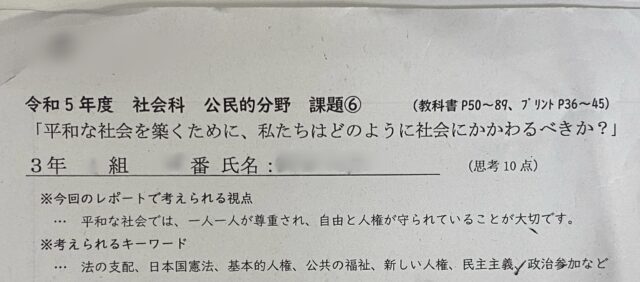 令和５年度　社会科　公民的分野　課題⑥　（教科書 P50～89、プリント P36～45）
「平和な社会を築くために、私たちはどのように社会にかかわるべきか？」
３年　組　番 氏名：　（思考 10 点）
※今回のレポートで考えられる視点
… 平和な社会では、一人一人が尊重され、自由と人権が守られていることが大切です。
※考えられるキーワード
… 法の支配、日本国憲法、基本的人権、公共の福祉、新しい人権、民主主義、政治参加など